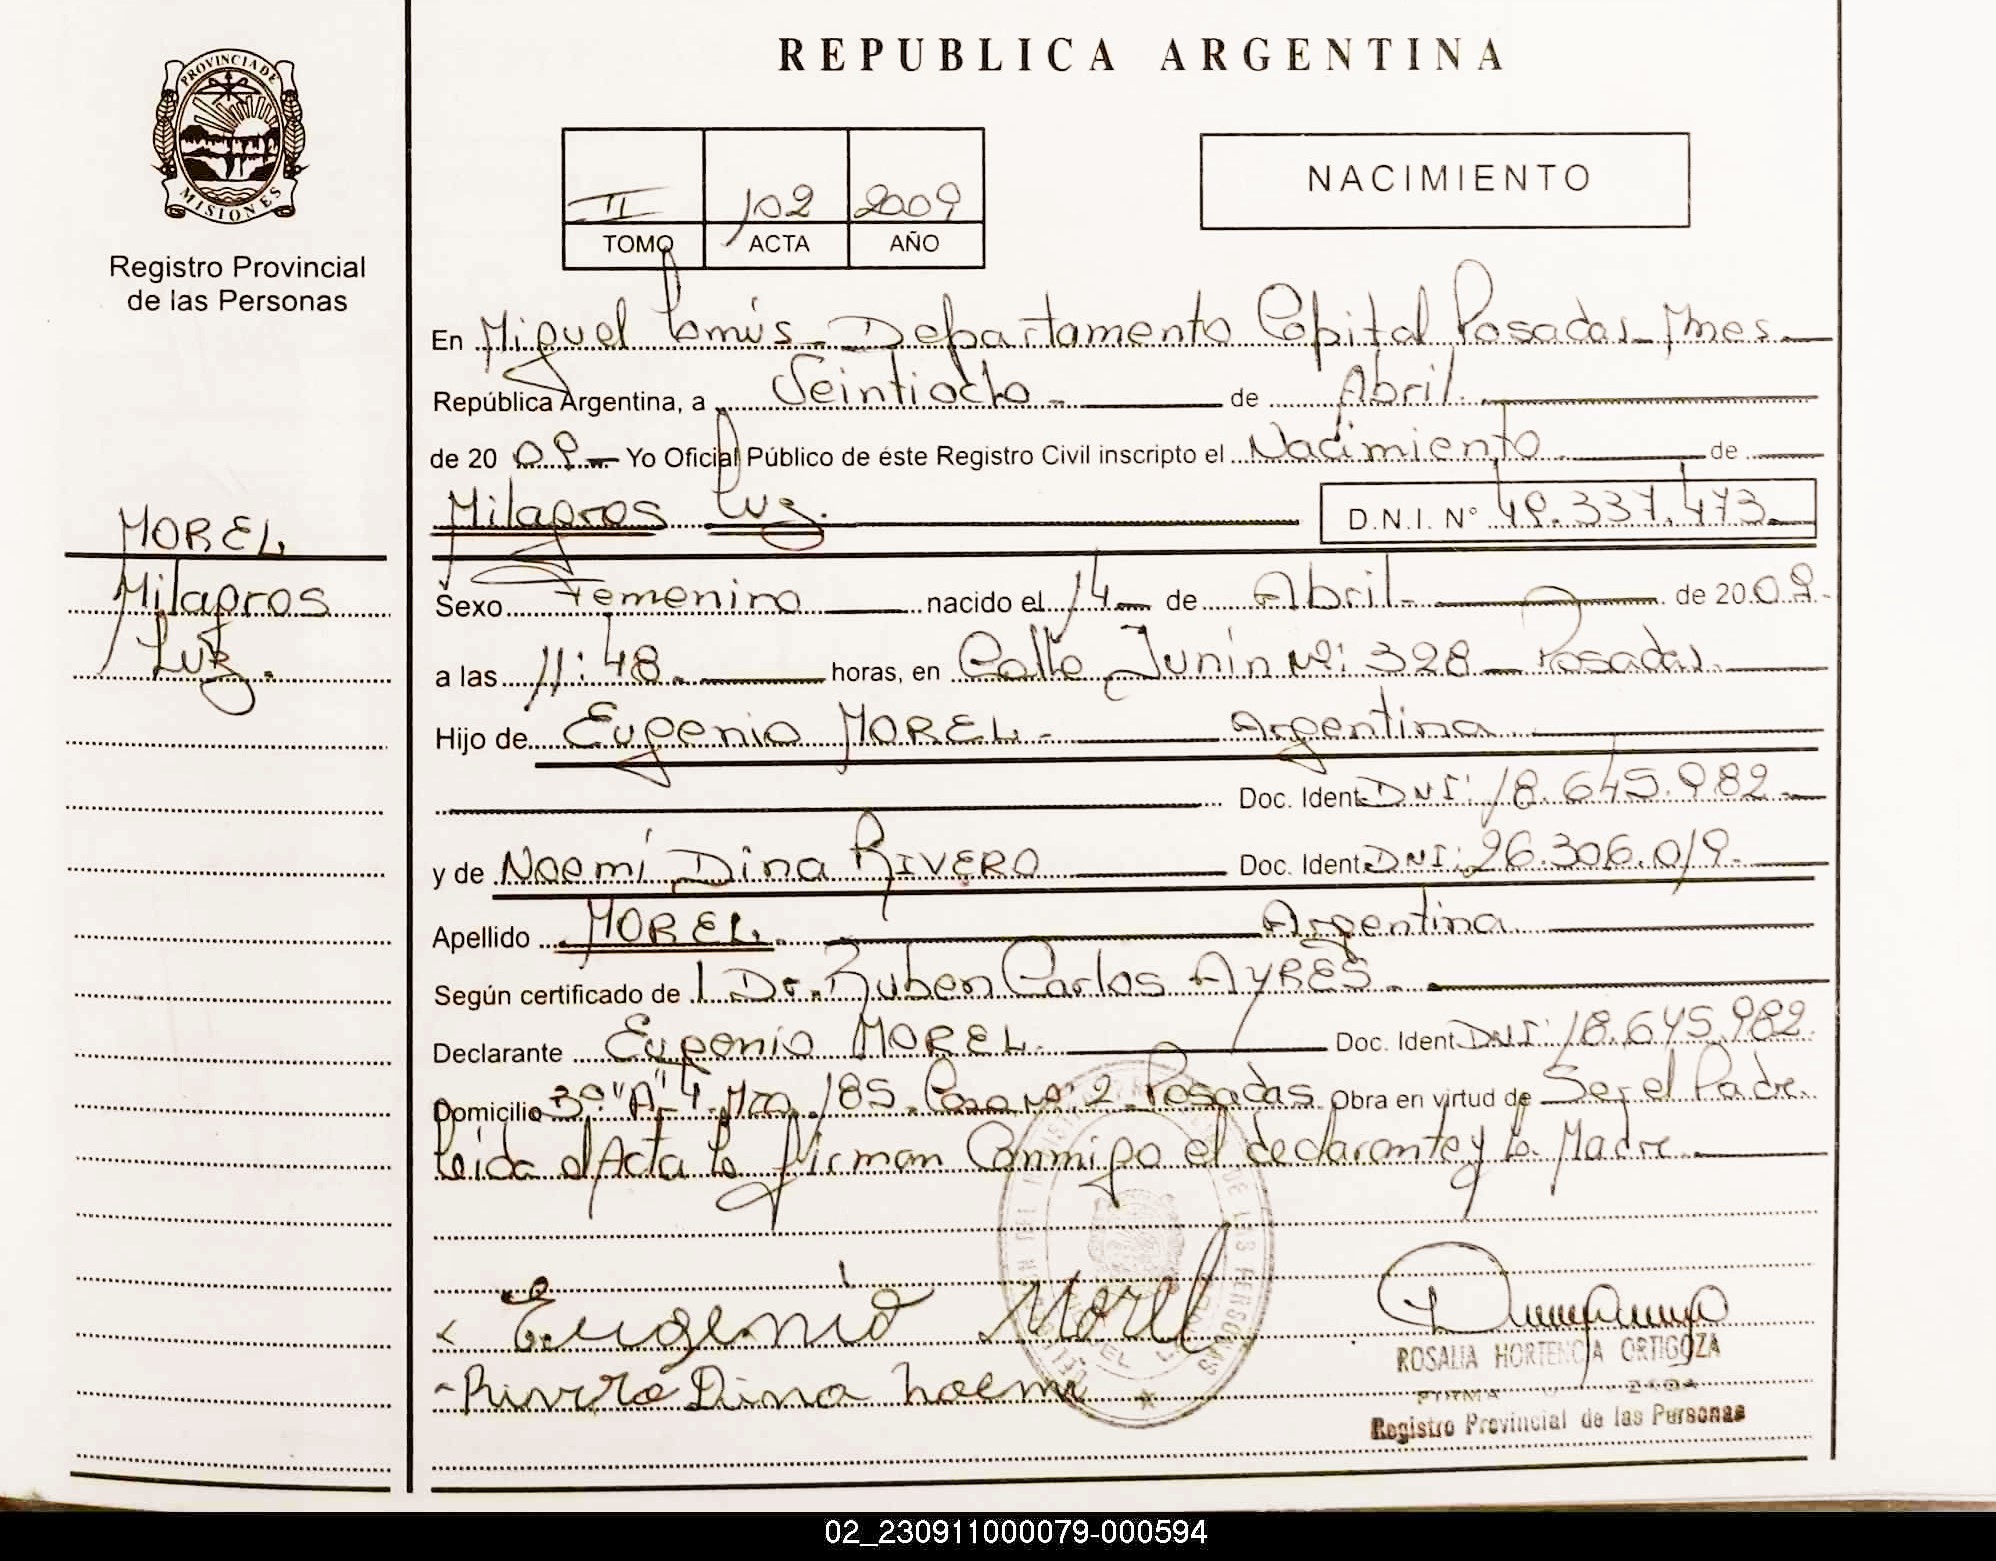 REPUBLICA ARGENTINA
PROVINCIA DE MISIONES
Registro Provincial
de las Personas
NACIMIENTO
II 102 2009
TOMO ACTA AÑO
En Miguel Lanús - Departamento Capital Posadas Mnes -
República Argentina, a Veintiocho - de Abril.
de 2009 - Yo Oficial Público de éste Registro Civil inscripto el Nacimiento de
Milagros Luz. D.N.I. N° 49.337.473
MOREL
Milagros
Luz.
Sexo Femenino nacido el 14 de Abril de 2009.
a las 11:48. horas, en Calle Junín Nº: 328 - Posadas.
Hijo de Eugenio MOREL - Argentina
Doc. Ident DNI: 18.645.982 -
y de Noemí Dina RIVERO Doc. Ident DNI: 26.306.019.
Apellido MOREL. Argentina
Según certificado de l Dr. Ruben Carlos AYRES.
Declarante Eugenio MOREL. Doc. Ident DNI: 18.645.982.
Domicilio 3° "A" 4 Mza. 185 Casa Nº: 2 Posadas Obra en virtud de Ser el Padre
Leída el Acta la firman Conmigo el declarante y la Madre.
Eugenio Morel
Rivero Dina Noemi
ROSALIA HORTENCIA ORTIGOZA
Registro Provincial de las Personas
02_230911000079-000594